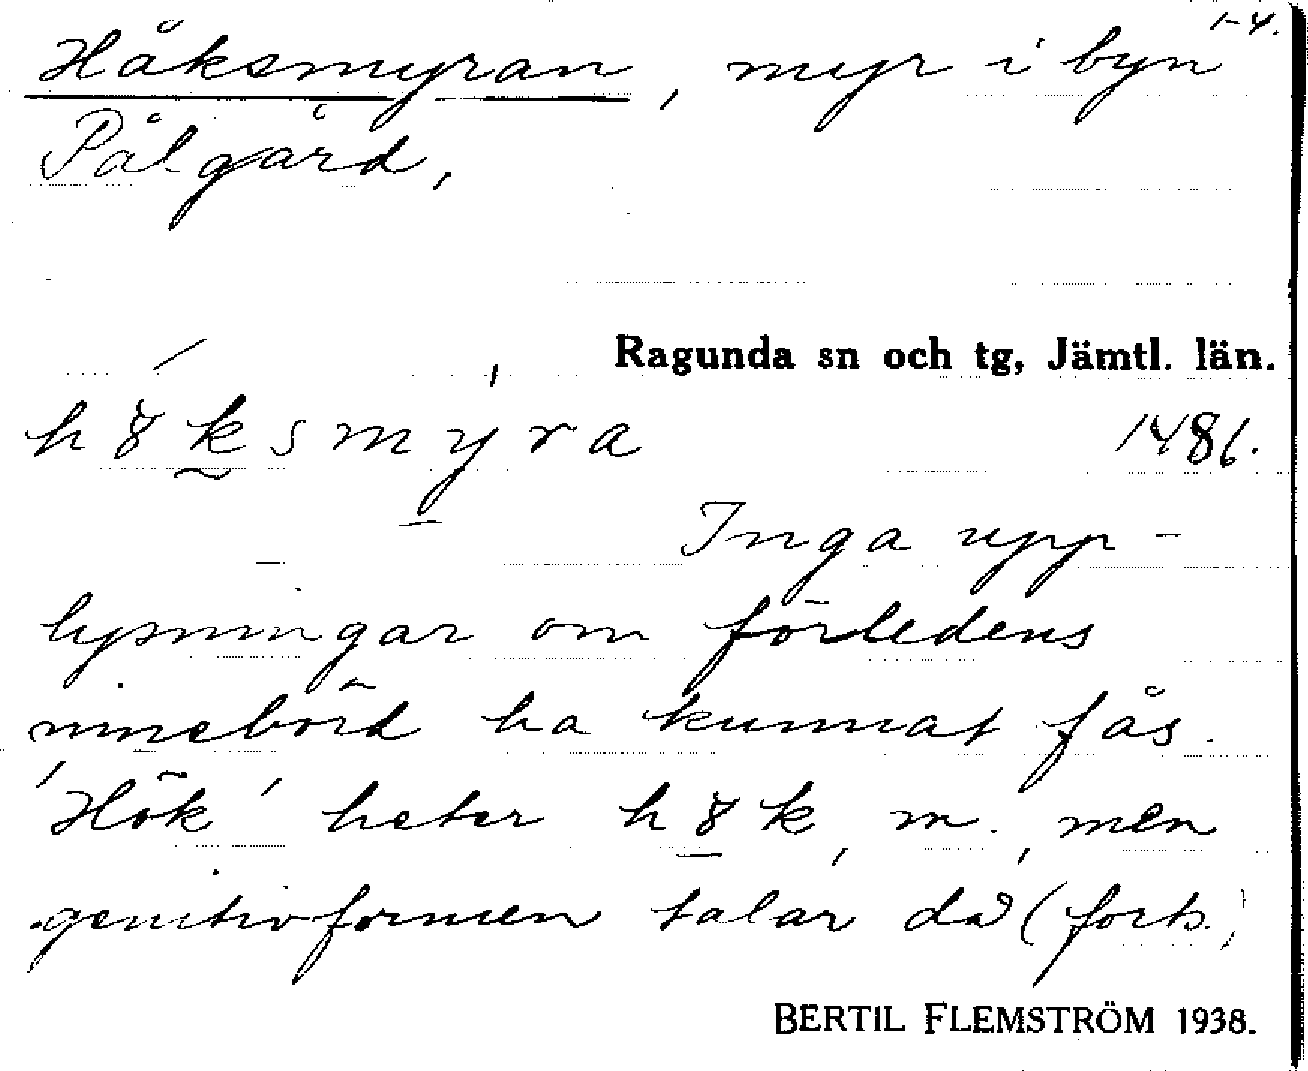 1-4.
Håksmyran, myr i byn
Pålgård,
Ragunda sn och tg, Jämtl. län.
h8ksmyra 1481.
Inga upp-
lysningar om förledens
innebörd ha kunnat fås.
'Hök' heter h8k, m., men
genitivformen talar då (forts.)
BERTIL FLEMSTRÖM 1938.